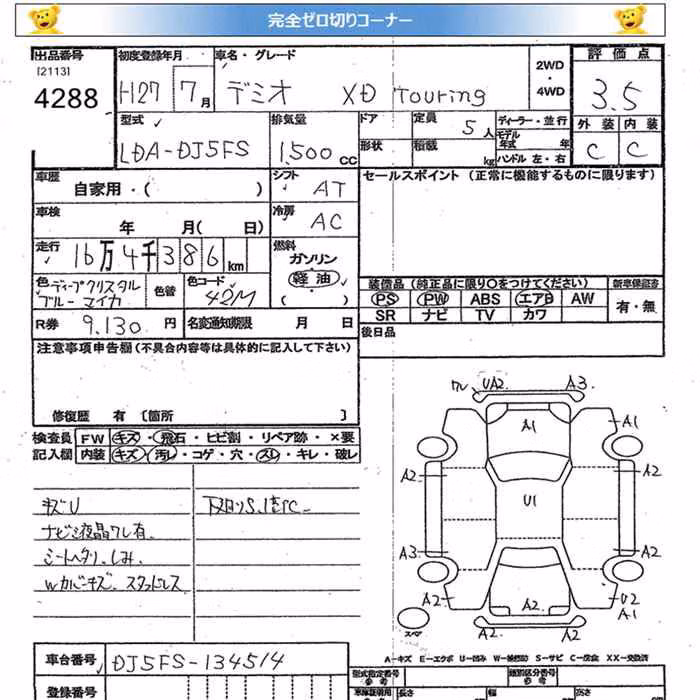 完全ゼロ切りコーナー
出品番号 初度登録年月 車名・グレード 2WD 評価点
[2113]
4288 H27 7月 デミオ XD Touring ・4WD 3.5
型式 排気量 ドア 定員 5人 ディーラー・並行 外装 内装
LDA-DJ5FS 1,500cc 形状 積載 kg モデル年式 年 C C
ハンドル 左・右
車歴 シフト セールスポイント (正常に機能するものに限ります)
自家用・( ) AT
車検 冷房
年 月( 日) AC
走行 16万4千386km 燃料
ガソリン
色 ディープクリスタル 色替 色コード 軽油 装備品 (純正品に限り○をつけてください) 新車保証書
ブルーマイカ 42M ( ) PS PW ABS エアB AW 有・無
R券 9,130円 名変通知期限 月 日 SR ナビ TV カワ
注意事項申告欄 (不具合内容等は具体的に記入して下さい) 後日品
修復歴 有 [箇所 ]
UA2 A3
検査員 FW キズ・飛石・ヒビ割・リペア跡・×要 A1 A1
記入欄 内装 キズ・汚レ・コゲ・穴・スレ・キレ・破レ
A2 A2
キズU 下回りS、 U1
ナビ液晶ワレ有、
シートヘタリ、しみ、 A3 A2
Wカバーキズ、スタッドレス
A2 A2 U2
A1
スペア A2 A2
A-キズ E-エクボ U-凹み S-サビ C-腐食 XX-交換済
車台番号 DJ5FS-134514
型式指定番号 類別区分番号
参考 参考
登録番号 長さ 幅 高さ